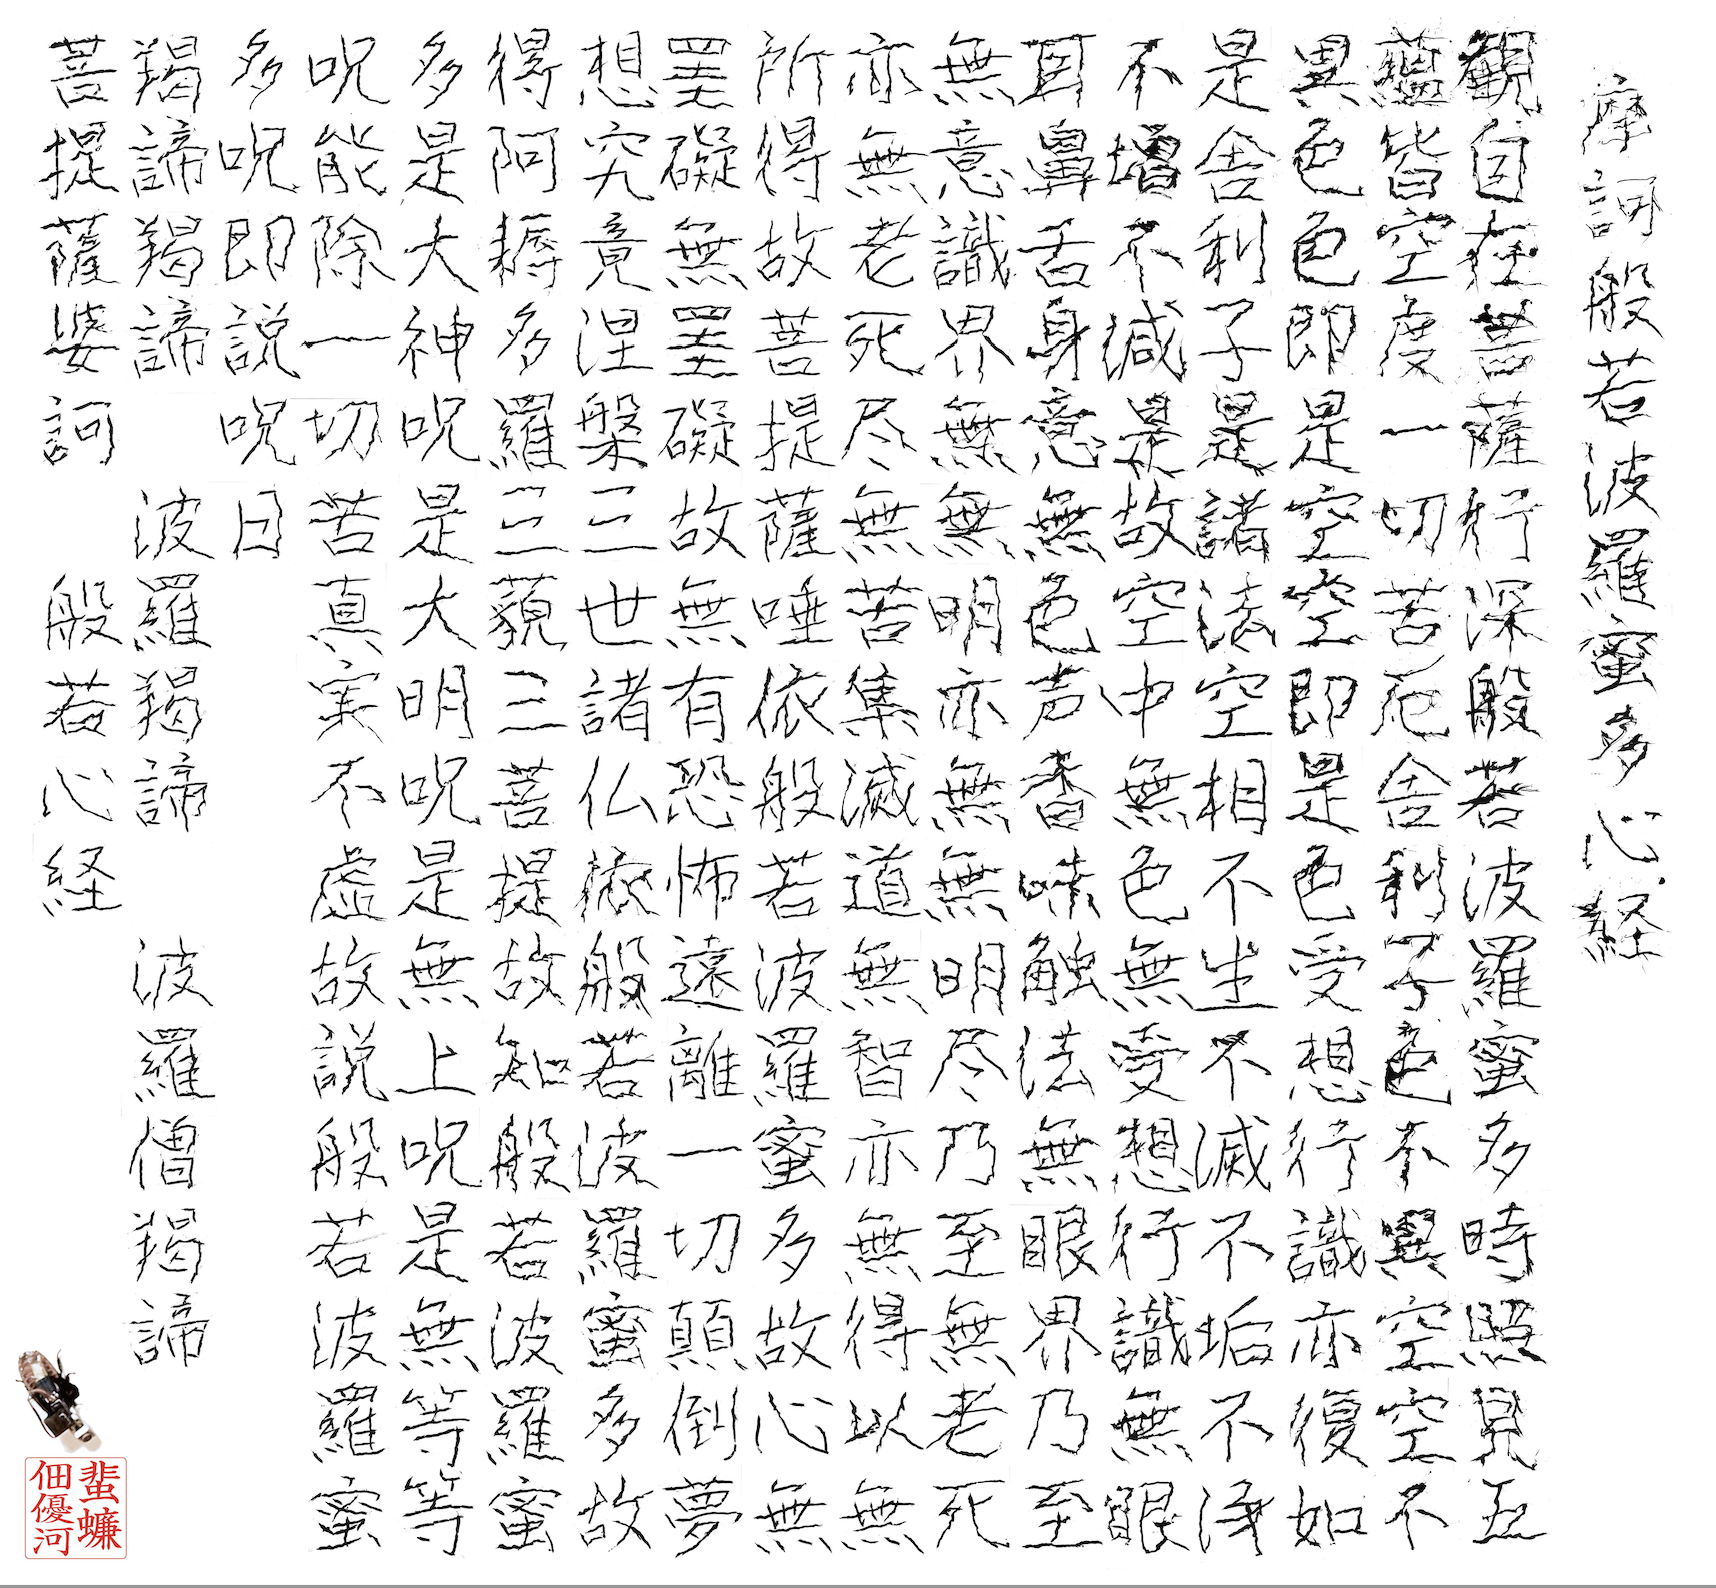 摩訶般若波羅蜜多心経
観自在菩薩行深般若波羅蜜多時照見五
蘊皆空度一切苦厄舎利子色不異空空不
異色色即是空空即是色受想行識亦復如
是舎利子是諸法空相不生不滅不垢不浄
不増不減是故空中無色無受想行識無眼
耳鼻舌身意無色声香味触法無眼界乃至
無意識界無無明亦無無明尽乃至無老死
亦無老死尽無苦集滅道無智亦無得以無
所得故菩提薩唾依般若波羅蜜多故心無
罣礙無罣礙故無有恐怖遠離一切顛倒夢
想究竟涅槃三世諸仏依般若波羅蜜多故
得阿耨多羅三藐三菩提故知般若波羅蜜
多是大神呪是大明呪是無上呪是無等等
呪能除一切苦真実不虚故説般若波羅蜜
多呪即説呪曰
羯諦羯諦 波羅羯諦 波羅僧羯諦
菩提薩婆訶 般若心経
蜚蠊
佃優河